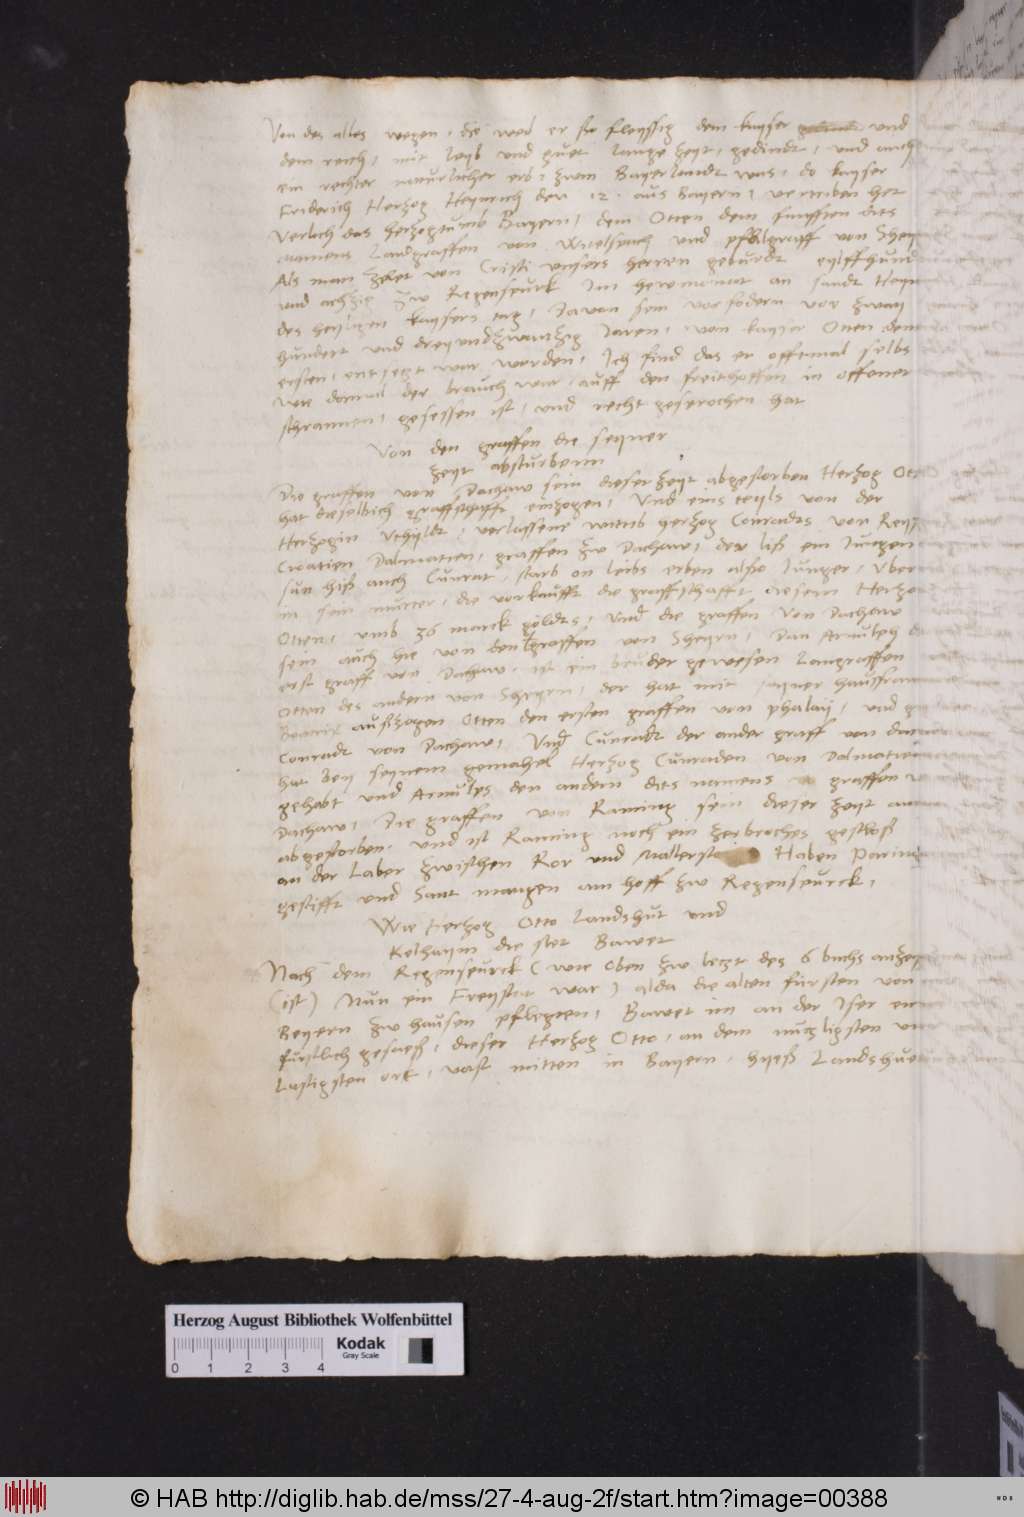 Von des alles wegen, die weil er so fleyssig dem kayser und
dem reich, mit leyb und guet lange zeyt, gedindt, und auch
ein rechter naturlicher erb, zum Bayerlandt was, do kayser
Friderich Herzog Heynrich den 12. aus Bayern, vertriben het
verlech das herzogtumb Bayern, dem Otten dem funfften dits
namens Landgraffen von Witelspach und pfalgraff von
Als man zelet von Cristi unsers herren geburdt eylffhund
und achzig zw Regenspurk Im herwmonat an sandt
des heyligen kaysers tag, Davon sein vorfodern vor zway
hundert und dreyundzwantzig Jaren, von kayser Otten dem
ersten, entsetzt war worden, Ich find das er offtmal selbs
wie domal der brauch war, auff den freithoffen in offener
schrannen, gesessen ist, und recht gesprochen hat
Von den graffen die seyner
zeyt absturbenn
Die graffen von Dachaw sein dieser zeyt abgestorben Herzog
hat dieselbich graffschafft einzogen, Und eins teyls von der
Herzogin verlassene witib herzog Conradts von
Croatien Dalmatien, graffen zw Dachaw, der liß ein Jungen
sun hiß auch Cunrat, starb on leibs erben also Junger,
in sein mutter, die verkaufft die graffschafft diesem
Otten, umb 36 marck goldts, Und die graffen von Dachaw
sein auch hie von den graffen von Sheyrn, Dan Arnulph
erst graff von Dachaw, ist ein bruder gewesen Langraffen
Otten des andern von Sheyrn, der hat mit seyner hausfrauen
außzogen Otten den ersten graffen von phalay, und
Conradt von Dachaw, Und Cunradt der ander graff von
hat bey seynem gemahel Herzog Cunraden von
gehabt und Arnulps den andern dits namens graffen
Dachaw, Die graffen von Raning sein dieser zeyt
abgestorben, und ist Raning noch ein zerbroches geschloß
an der Laber zwischen Ror und Haben
gestifft und Sant mangen am hoff zw Regenspurck,
Wie Herzog Otto Landshut und
Kelhaym die stet Bawet
Nach dem Regenspurck (wie oben zw letzt des 6 buchs
(ist) Nun ein Freystat war) alda die alten fürsten von
Beyern zw hausen pflegten, Bawet im an der Iser
furstlich gesaeß, dieser Herzog Otto, an dem nutzligsten
Lustigsten ort, vast mitten in Bayern, hyeß
Herzog August Bibliothek Wolfenbüttel
Kodak
Gray Scale
0 1 2 3 4
© HAB http://diglib.hab.de/mss/27-4-aug-2f/start.htm?image=00388